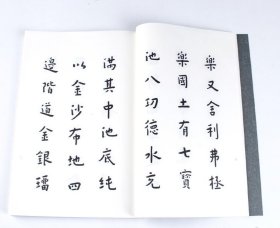 樂又舍利弗極
樂國土有七寶
池八功德水充
滿其中池底純
以金沙布地四
邊階道金銀瑠